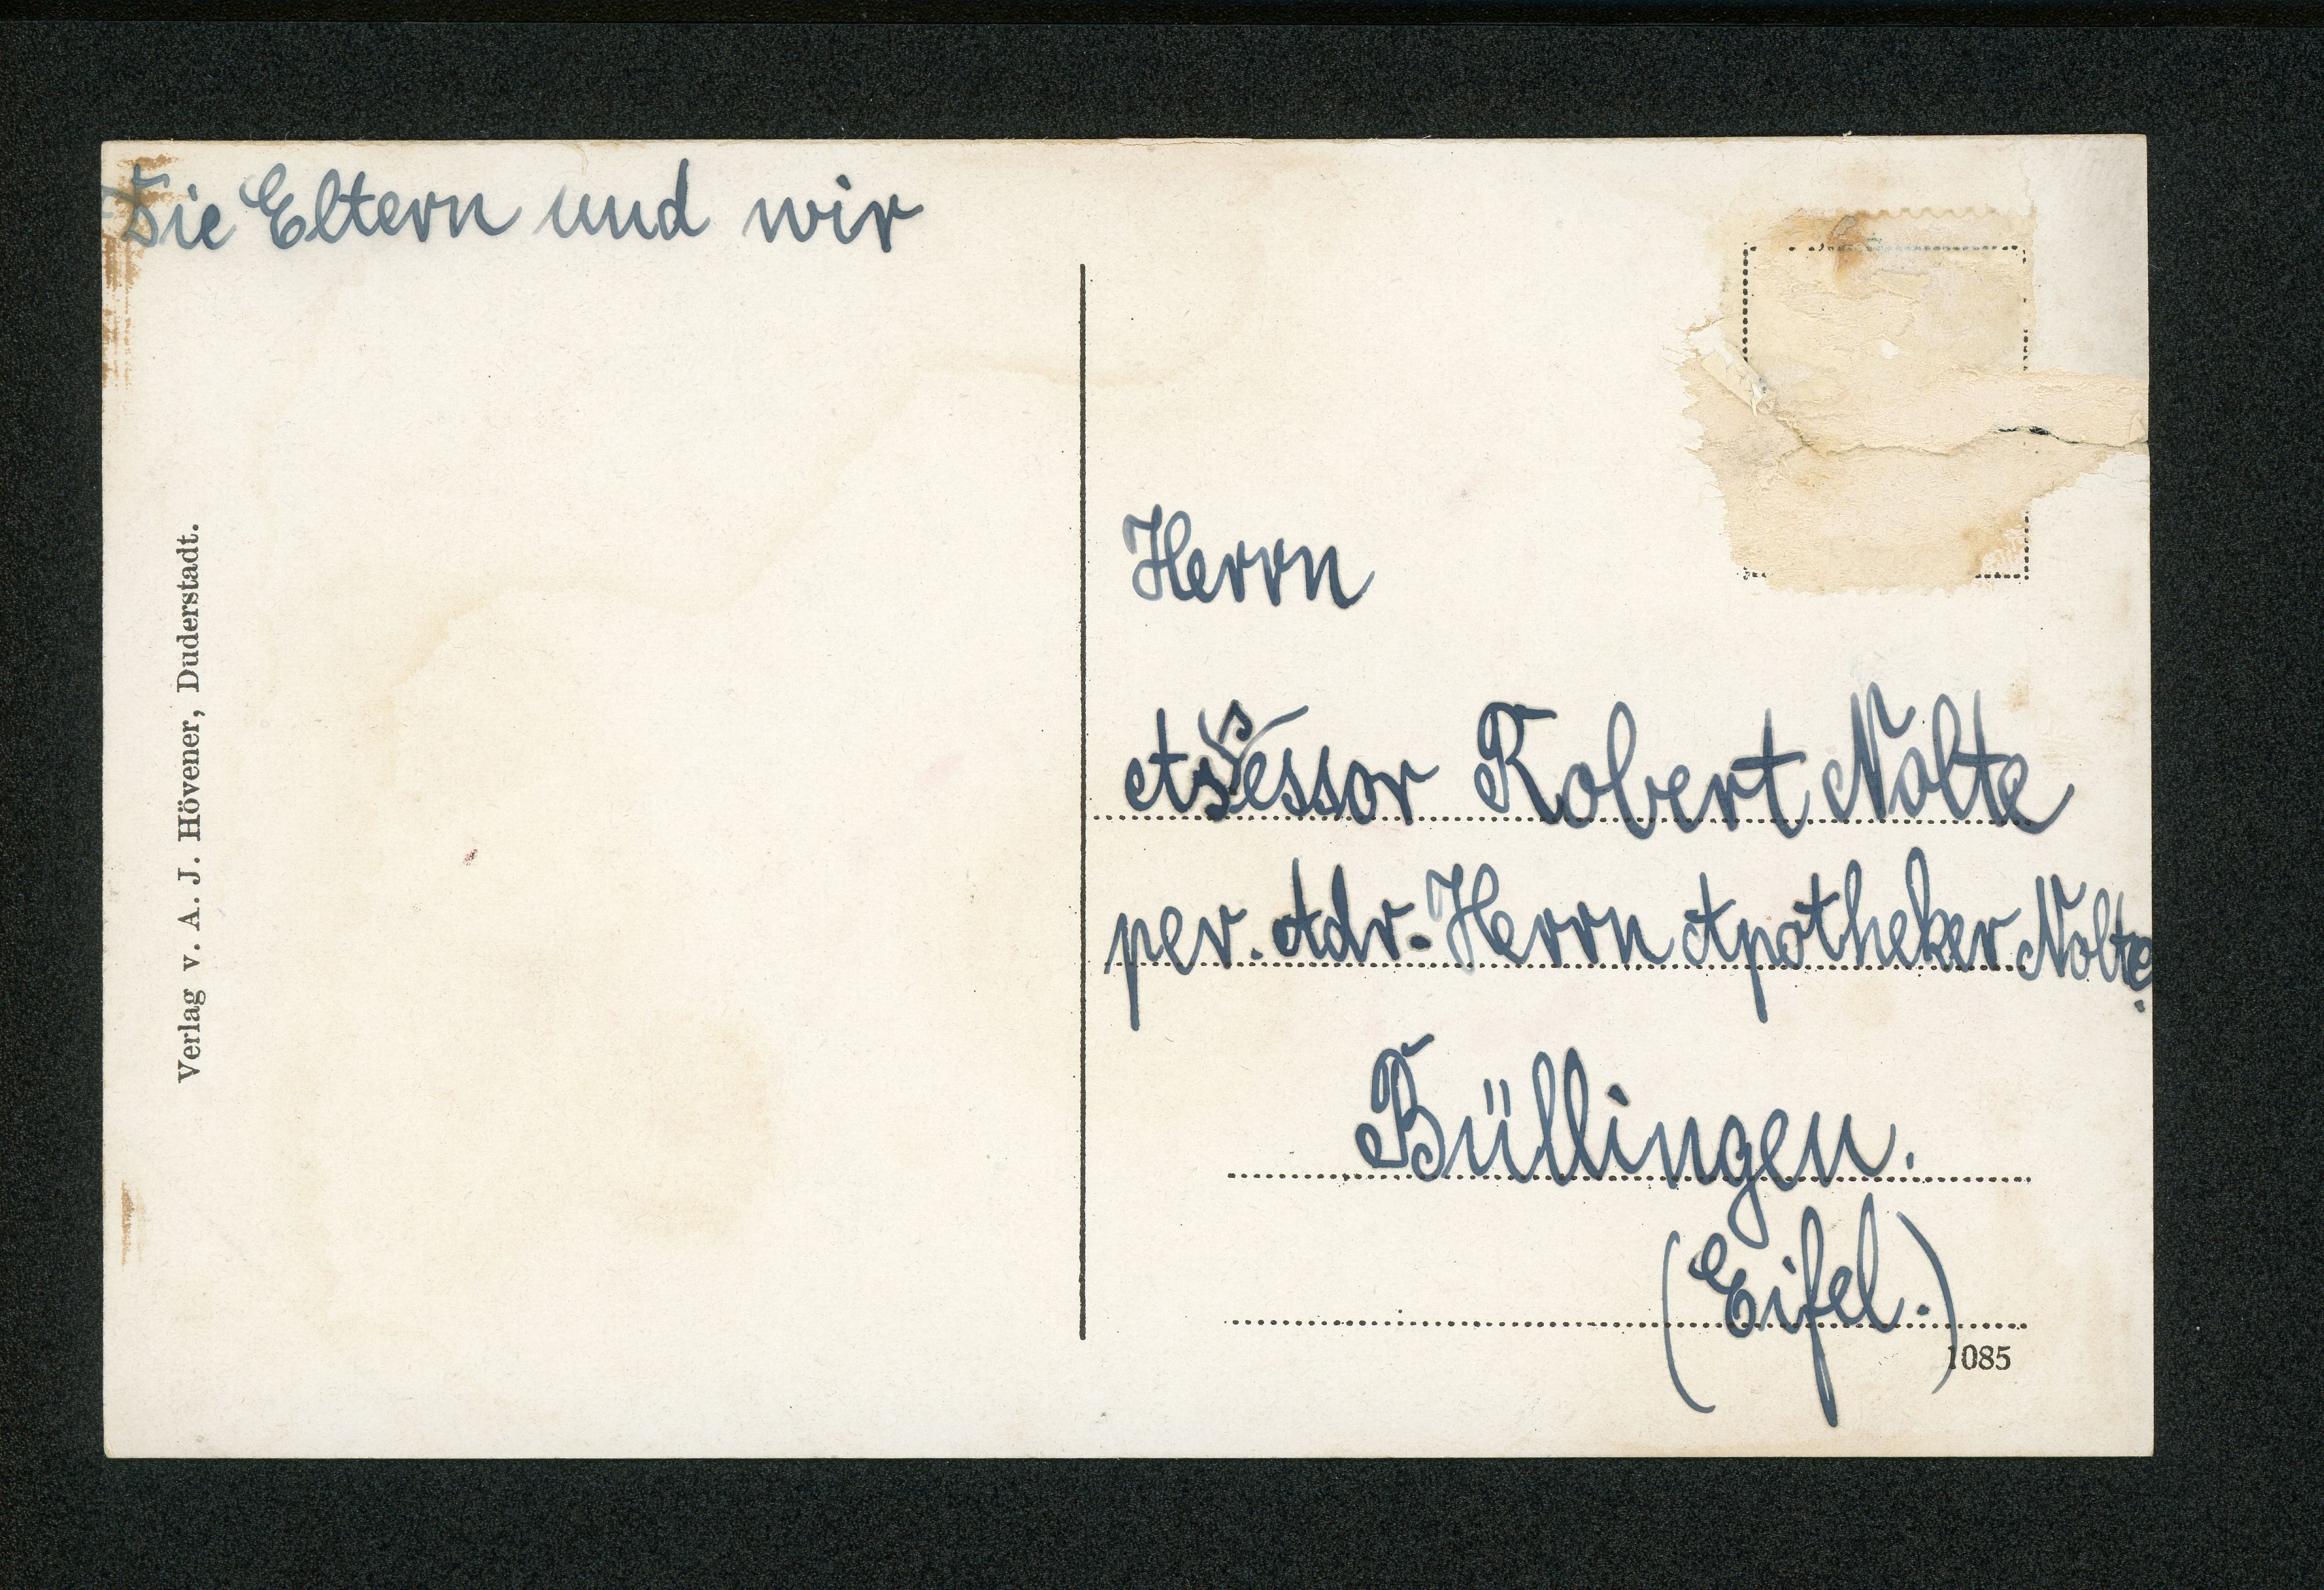 Die Eltern und wir
Verlag v. A. J. Hövener, Duderstadt.
Herrn
Assessor Robert Nolte
per. Adr. Herrn Apotheker Nolte.
Büllingen.
(Eifel.)
1085